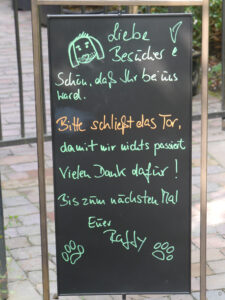 Liebe
Besucher!
Schön, daß Ihr bei uns
ward.
Bitte schließt das Tor,
damit mir nichts passiert
Vielen Dank dafür!
Bis zum nächsten Mal
Euer